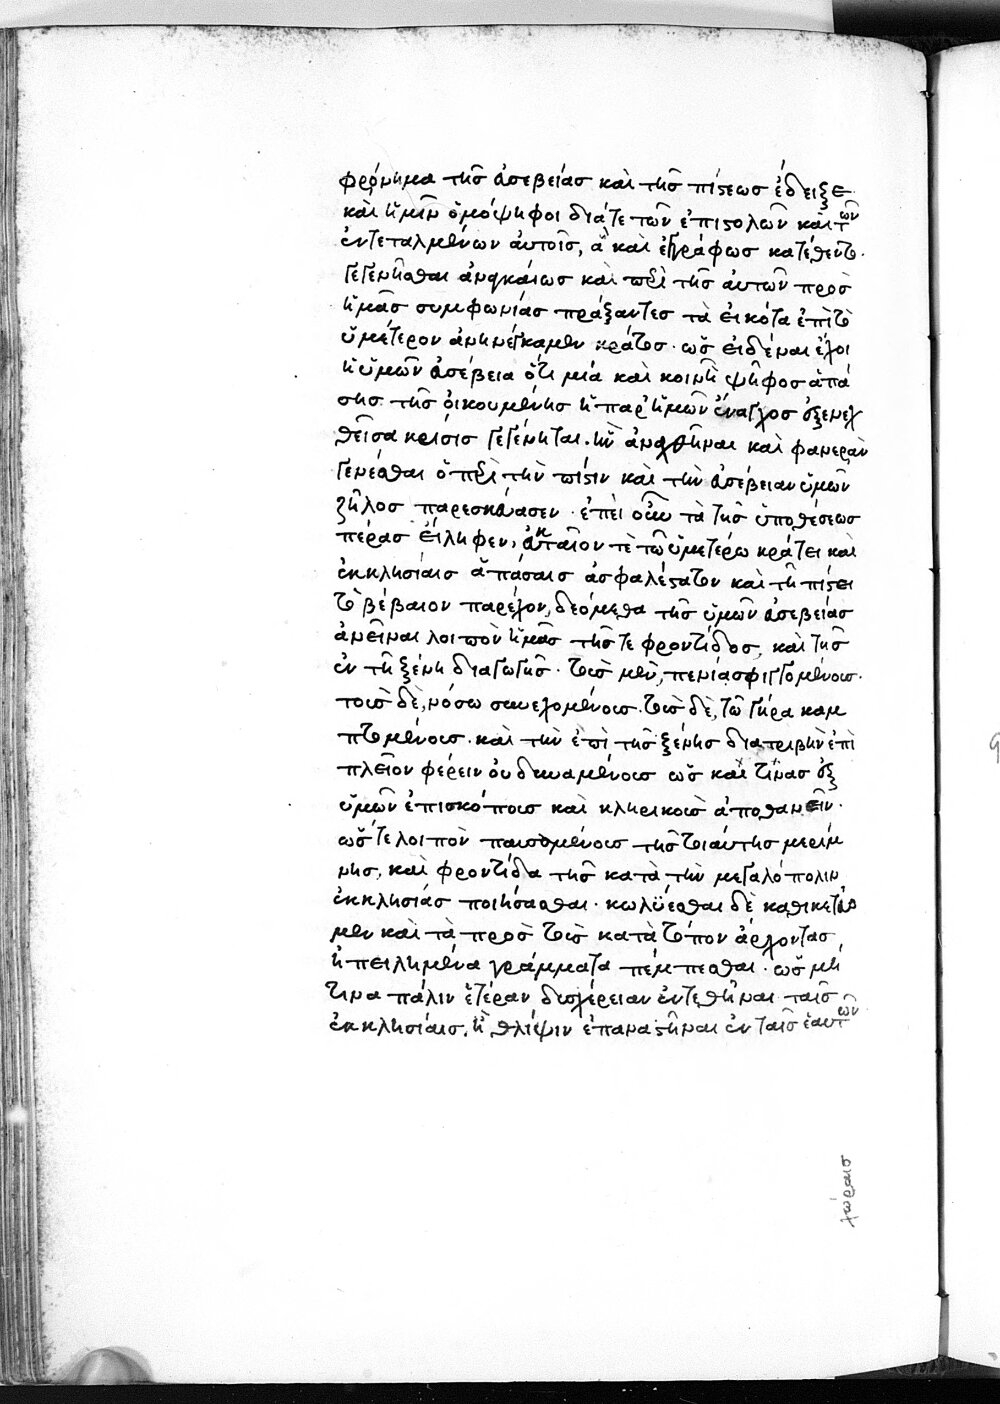 φρόνημα τῆς ἀσεβείας καὶ τῆς πίστεως ἔδειξε
καὶ ἡμῖν ὁμόψηφοι διά τε τῶν ἐπιστολῶν καὶ τῶν
ἐντεταλμένων αὐτοῖς, ἃ καὶ ἐγγράφως κατέθεντο.
γεγενῆσθαι ἀναγκαίως καὶ περὶ τῆς αὐτῶν πρὸς
ἡμᾶς συμφωνίας πράξαντες τὰ εἰκότα ἐπὶ τὸ
ὑμέτερον ἀνηνέγκαμεν κράτος. ὡς εἰδέναι ἔχοι
ἡ ὑμῶν ἀσέβεια ὅτι μιὰ καὶ κοινὴ ψῆφος ἁπά
σης τῆς οἰκουμένης ἡ παρ' ἡμῶν ἔναγχος ἐξενεχ
θεῖσα κρίσις γεγένηται. ἣν ἀναχθῆναι καὶ φανερὰν
γενέσθαι ὁ περὶ τὴν πίστιν καὶ τὴν ἀσέβειαν ὑμῶν
ζῆλος παρεσκεύασεν. ἐπεὶ οὖν τὰ τῆς ὑποθέσεως
πέρας εἴληφεν, ἀκταῖον τὲ τῶ ὑμετέρω κράτει καὶ
ἐκκλησίαις ἁπάσαις ἀσφαλέστατον καὶ τῆ πίστει
τὸ βέβαιον παρέχον, δεόμεθα τῆς ὑμῶν ἀσεβείας
ἀνεῖναι λοιπὸν ἡμᾶς τῆς τε φροντίδος, καὶ τῆς
ἐν τῆ ξένη διαγωγῆς. τοῖς μὲν, πενία σφιγγομένοις.
τοῖς δὲ, νόσω συνεχομένοις. τοῖς δὲ, τῶ γήρα καμ
πτομένοις. καὶ τὴν ἐπὶ τῆς ξένης διατριβὴν ἐπὶ
πλεῖον φέρειν οὐ δυναμένοις ὡς καί τινας ἐξ
ὑμῶν ἐπισκόποις καὶ κληρικοῖς ἀποθανεῖν.
ὥστε λοιπὸν παυσομένοις τῆς τοιαύτης μερίμ
νης, καὶ φροντίδα τῆς κατὰ τὴν μεγαλόπολιν
ἐκκλησίας ποιήσασθαι. κωλύεσθαι δὲ καθικετεύο
μεν καὶ τὰ πρὸς τοὺς κατὰ τόπον ἄρχοντας
ἠπειλημένα γράμματα πέμπεσθαι. ὡς μή
τινα πάλιν ἑτέραν δυσχέρειαν ἐντεθῆναι ταῖς
ἐκκλησίαις, ἢ θλίψιν ἐπαναστῆναι ἐν ταῖς ἑαυτῶν
χώραις